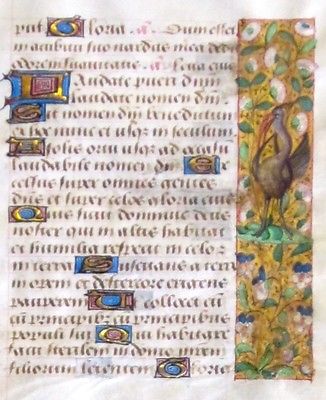 pat Gloria a Dum esset
in acubitu suo nardus mea dedit
odorem suavitatis a Leva eius
Laudate pueri dnm
laudate nomen dni
Sit nomen dni benedictum
ex hoc nunc et usqz in seculum
A solis ortu usqz ad occasū
laudabile nomen dni Ex
celsus super omnes gentes
dns et super celos gloria eius
Quis sicut dominus deus
noster qui in altis habitat
et humilia respicit in celo et
in terra Suscitans a terra
inopem et de stercore erigens
pauperem Ut collocet eū
cū principibz cū principibus
populi sui Qui habitare
facit sterilem in domo matrem
filiorum letantem Gloria